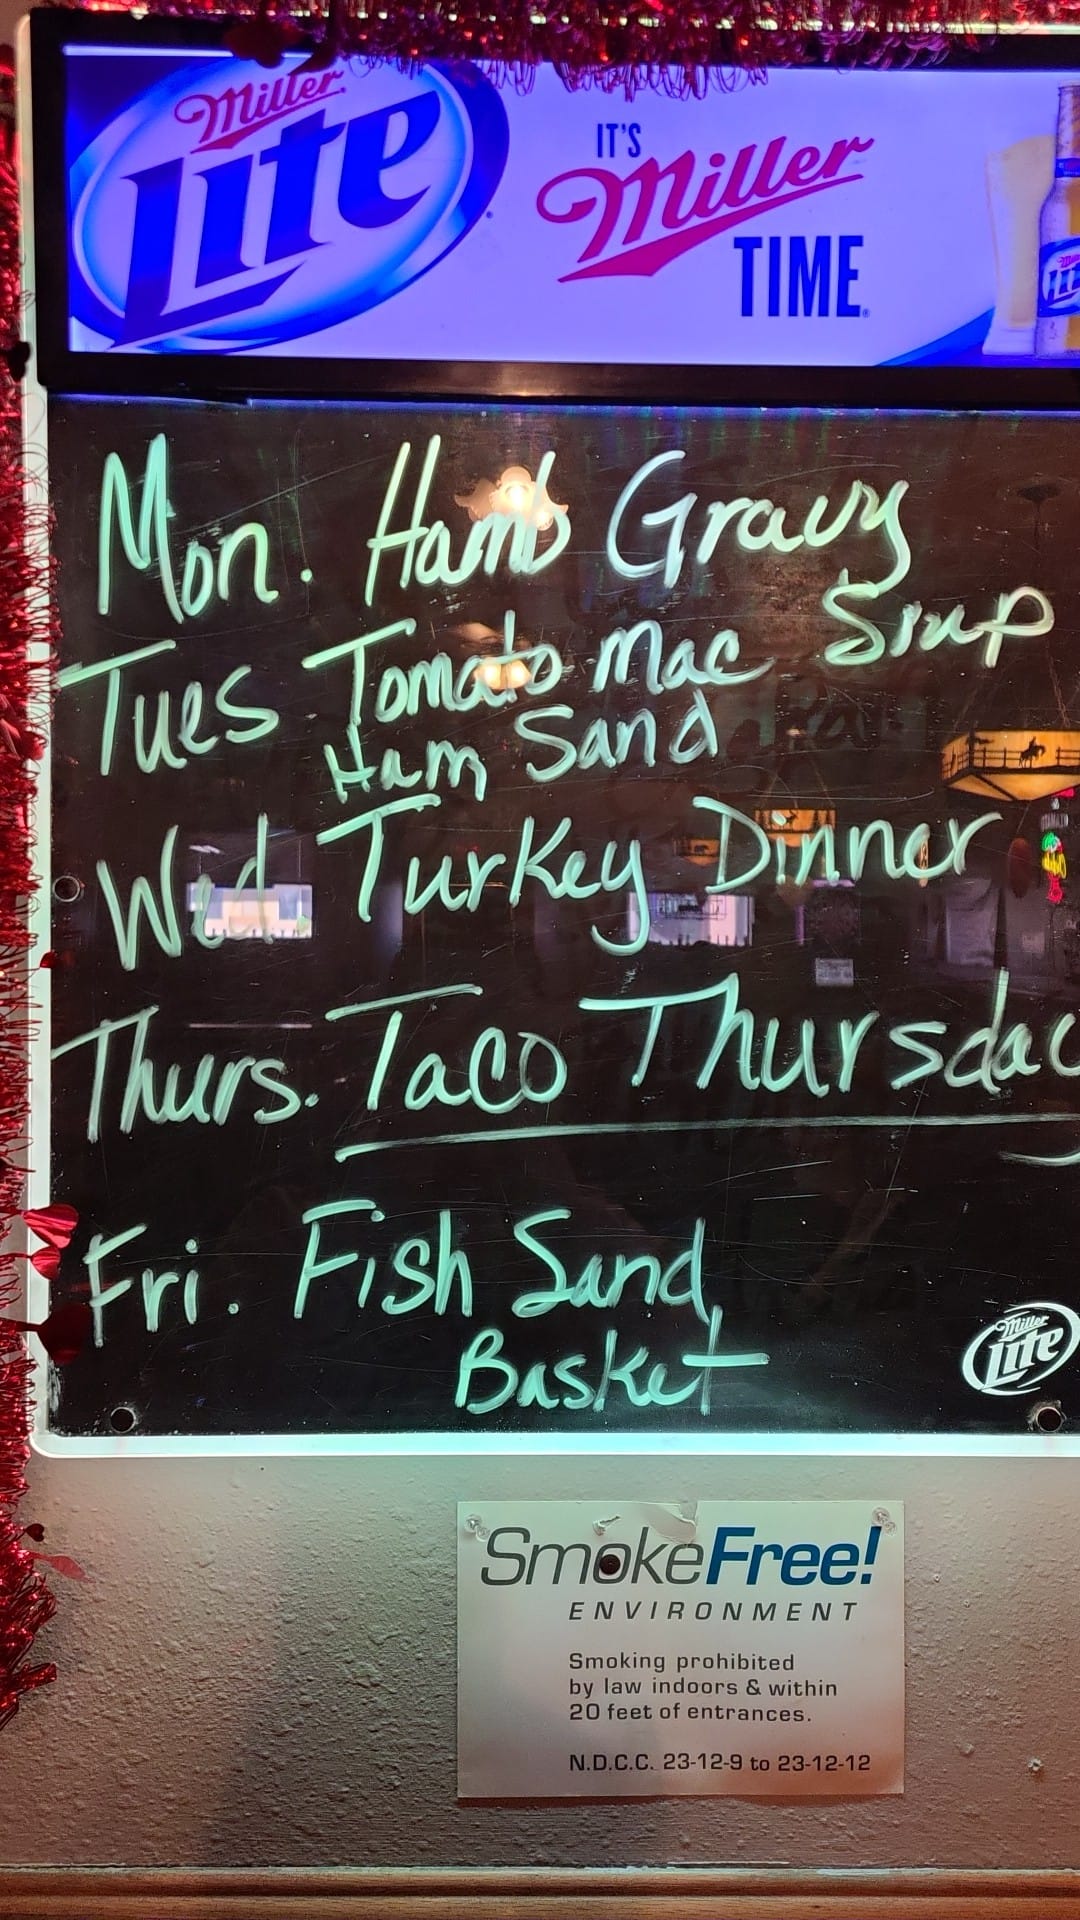 Miller Lite
IT'S Miller TIME
Mon. Hamb Gravy
Tues Tomato Mac Soup
Ham Sand
Wed Turkey Dinner
Thurs. Taco Thursday
Fri. Fish Sand
Basket
Miller Lite
SmokeFree!
ENVIRONMENT
Smoking prohibited
by law indoors & within
20 feet of entrances.
N.D.C.C. 23-12-9 to 23-12-12